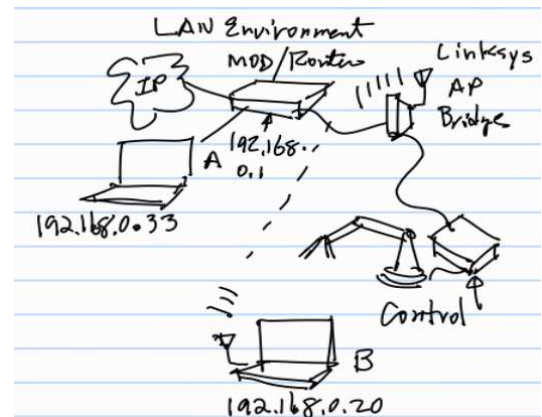 LAN Environment
MOD/Router
IP
Linksys
AP
Bridge
A
192.168.
0.1
192.168.0.33
Control
B
192.168.0.20